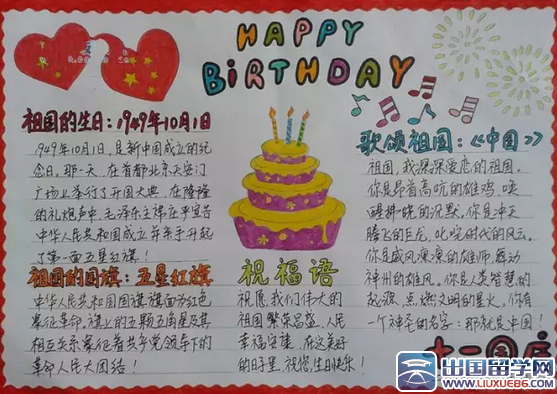 HAPPY
BiRTHDAY
祖国的生日:1949年10月1日
1949年10月1日,是新中国成立的纪
念日。那一天,在首都北京天安门
广场上举行了开国大典,在隆隆
的礼炮声中,毛泽东主席庄严宣告
中华人民共和国成立并亲手升起
了第一面五星红旗!
祖国的国旗:五星红旗
中华人民共和国国旗旗面为红色
象征革命。旗上的五颗五角星及其
相互关系象征着共产党领导下的
革命人民大团结!
祝福语
祝愿我们伟大的
祖国繁荣昌盛,人民
幸福安康,在这美好
的日子里,祝您生日快乐!
歌颂祖国:《中国》
祖国,我深深爱恋的祖国。
你是昂首高吭的雄鸡,唤
醒拂晓的沉默。你是冲天
腾飞的巨龙,叱咤时代的风云。
你是威风凛凛的雄狮,舞动
神州的雄风。你是人类智慧的
起源,点燃文明的星火。你有
一个神圣的名字:那就是中国!
十一国庆
出国留学网
www.liuxue86.com